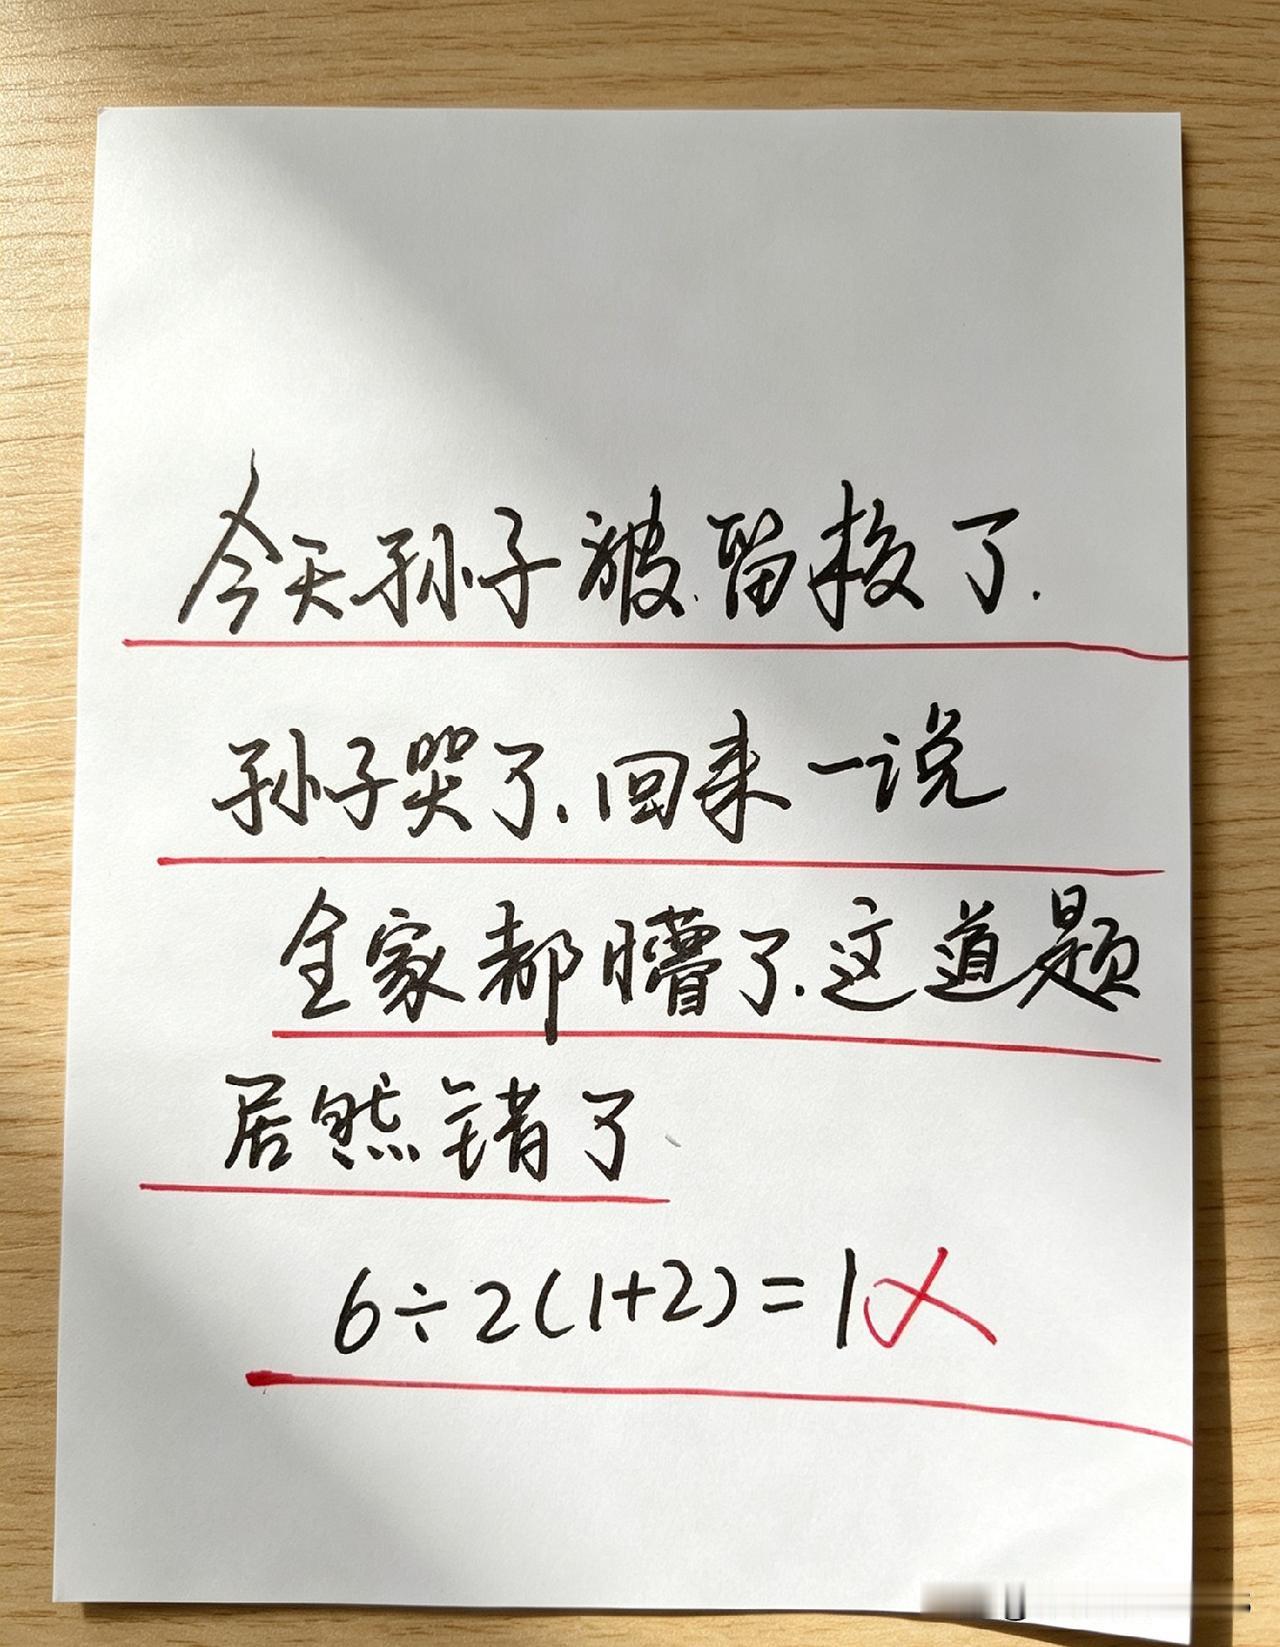 今天孙子被留校了.
孙子哭了.回来一说
全家都懵了.这道题
居然错了
6÷2(1+2)=1